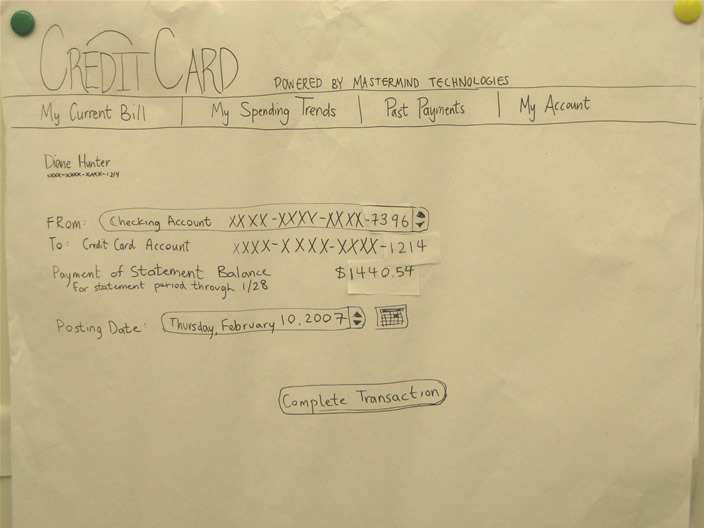 CREDIT CARD POWERED BY MASTERMIND TECHNOLOGIES
My Current Bill | My Spending Trends | Past Payments | My Account
Diane Hunter
xxxx-xxxx-xxxx-1214
FROM: Checking Account XXXX-XXXX-XXXX-7396
To: Credit Card Account XXXX-XXXX-XXXX-1214
Payment of Statement Balance $1440.54
for statement period through 1/28
Posting Date: Thursday, February 10, 2007
Complete Transaction